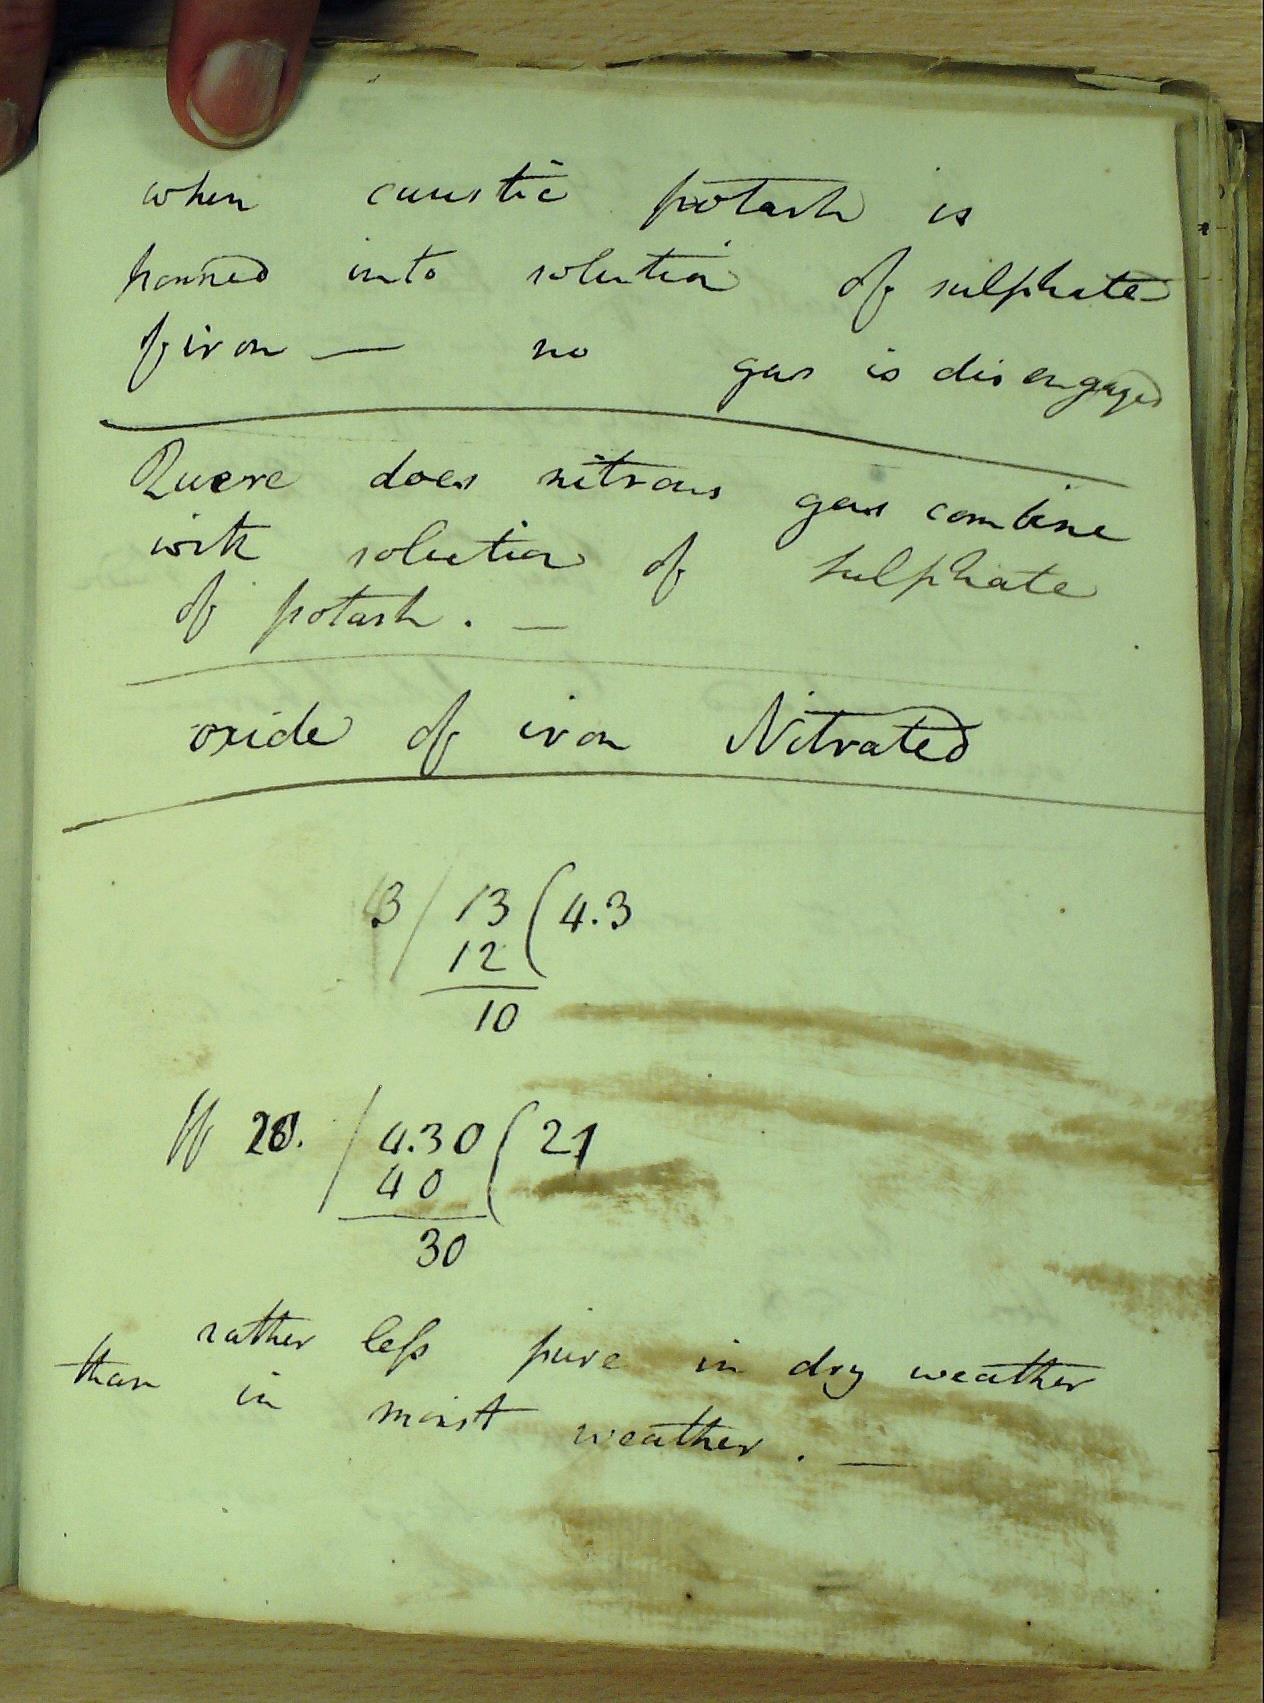 when caustic potash is
poured into solution of sulphate
of iron — no gas is disengaged
Quere does nitrous gas combine
with solution of sulphate
of potash. —
oxide of iron Nitrated
3 / 13 ( 4.3
12
10
20. / 4.30 ( 21
40
30
rather less pure in dry weather
than in moist weather. —